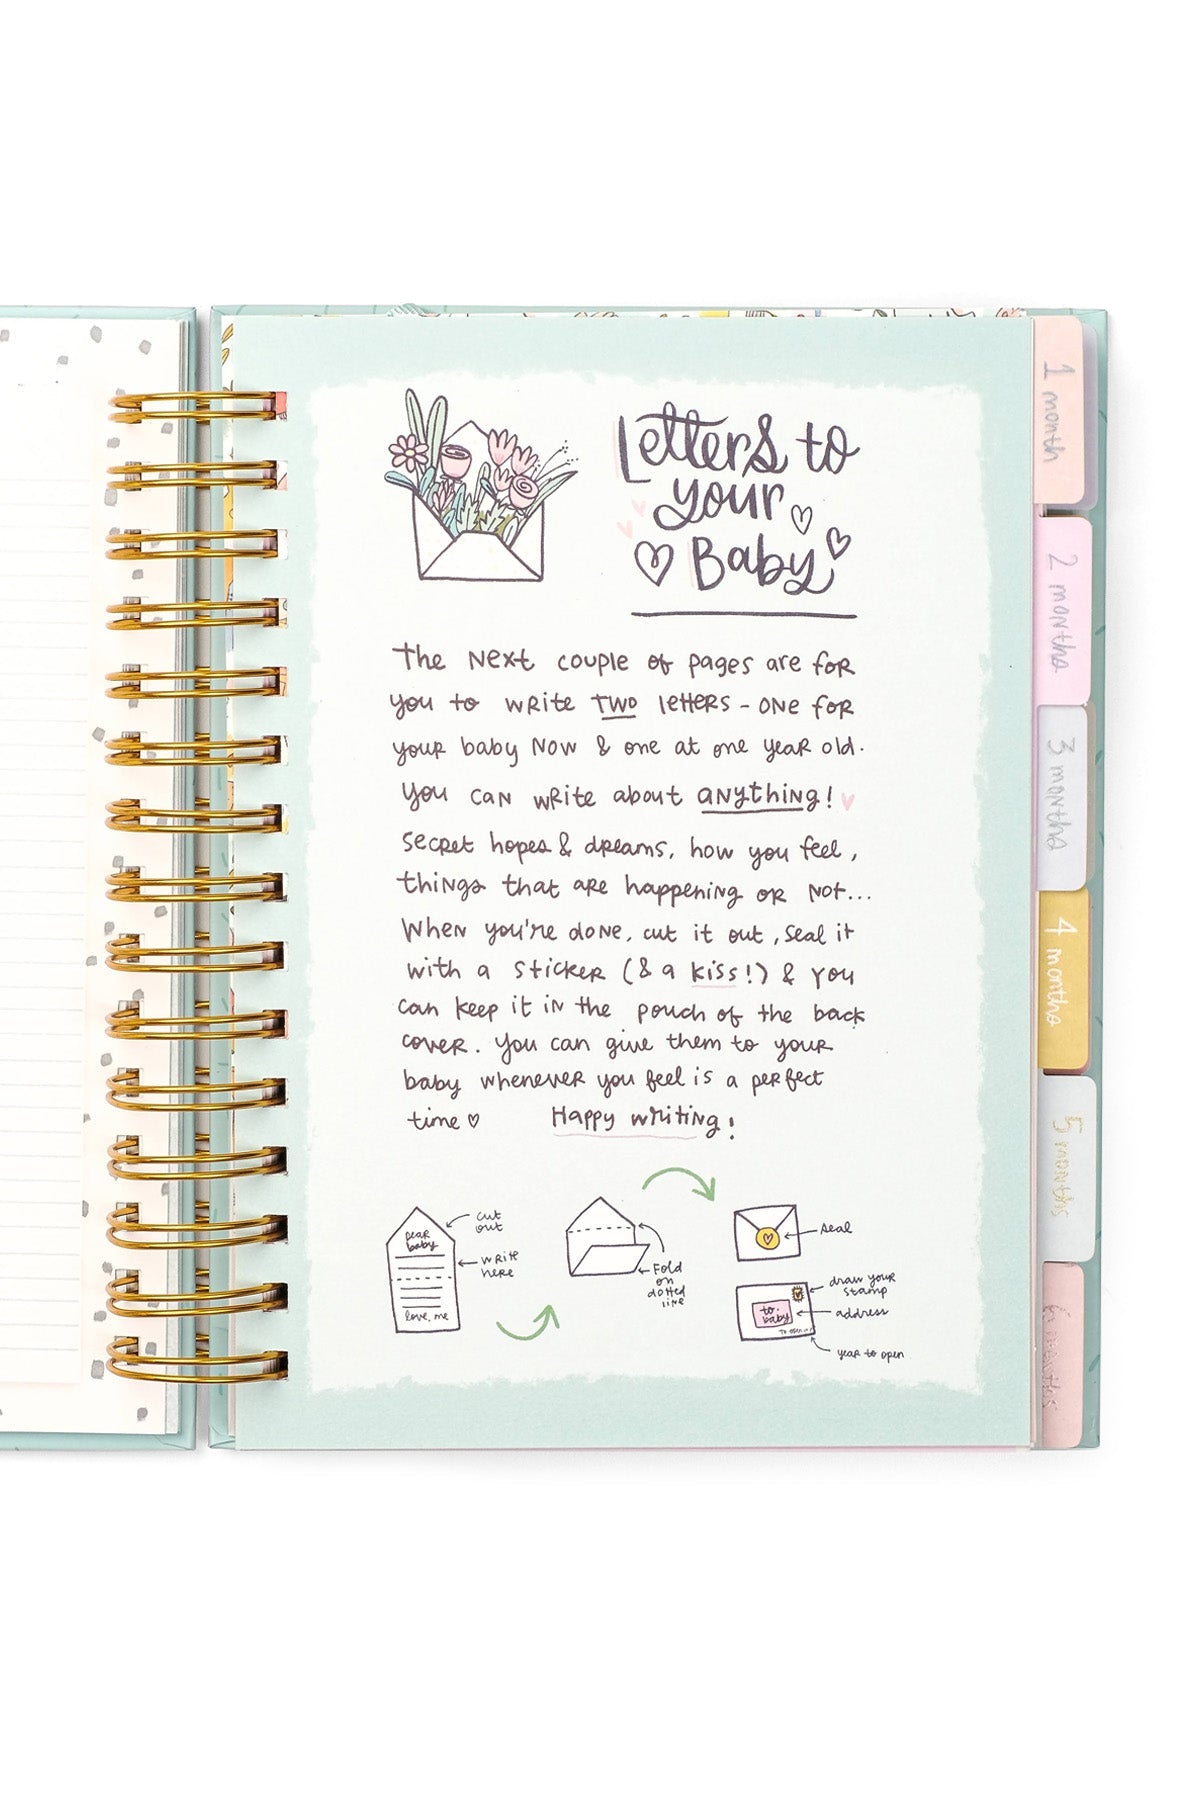 Letters to
your
Baby
The Next couple of pages are for
you to write TWO letters - one for
your baby now & one at one year old.
You can write about anything!
Secret hopes & dreams, how you feel,
things that are happening or not...
When you're done, cut it out, seal it
with a sticker (& a kiss!) & you
can keep it in the pouch of the back
cover. You can give them to your
baby whenever you feel is a perfect
time
Happy writing!
Dear
baby
love, me
cut
out
write
here
Fold
on
dotted
line
seal
to:
baby
to open in
draw your
stamp
address
year to open
1 month
2 months
3 months
4 months
5 months
6 months